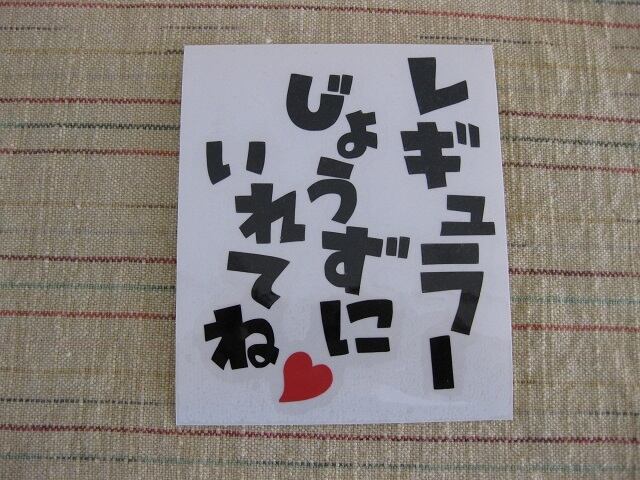 レギュラー
じょうずに
いれてね